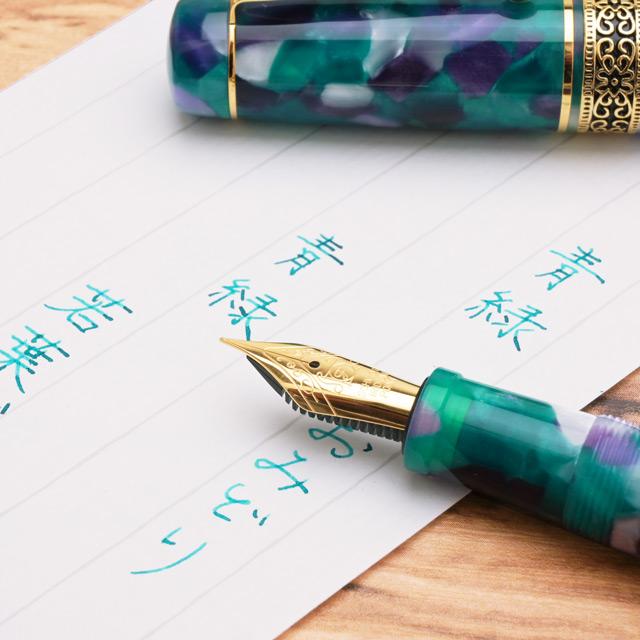 青緑 おみどり
青緑
若葉